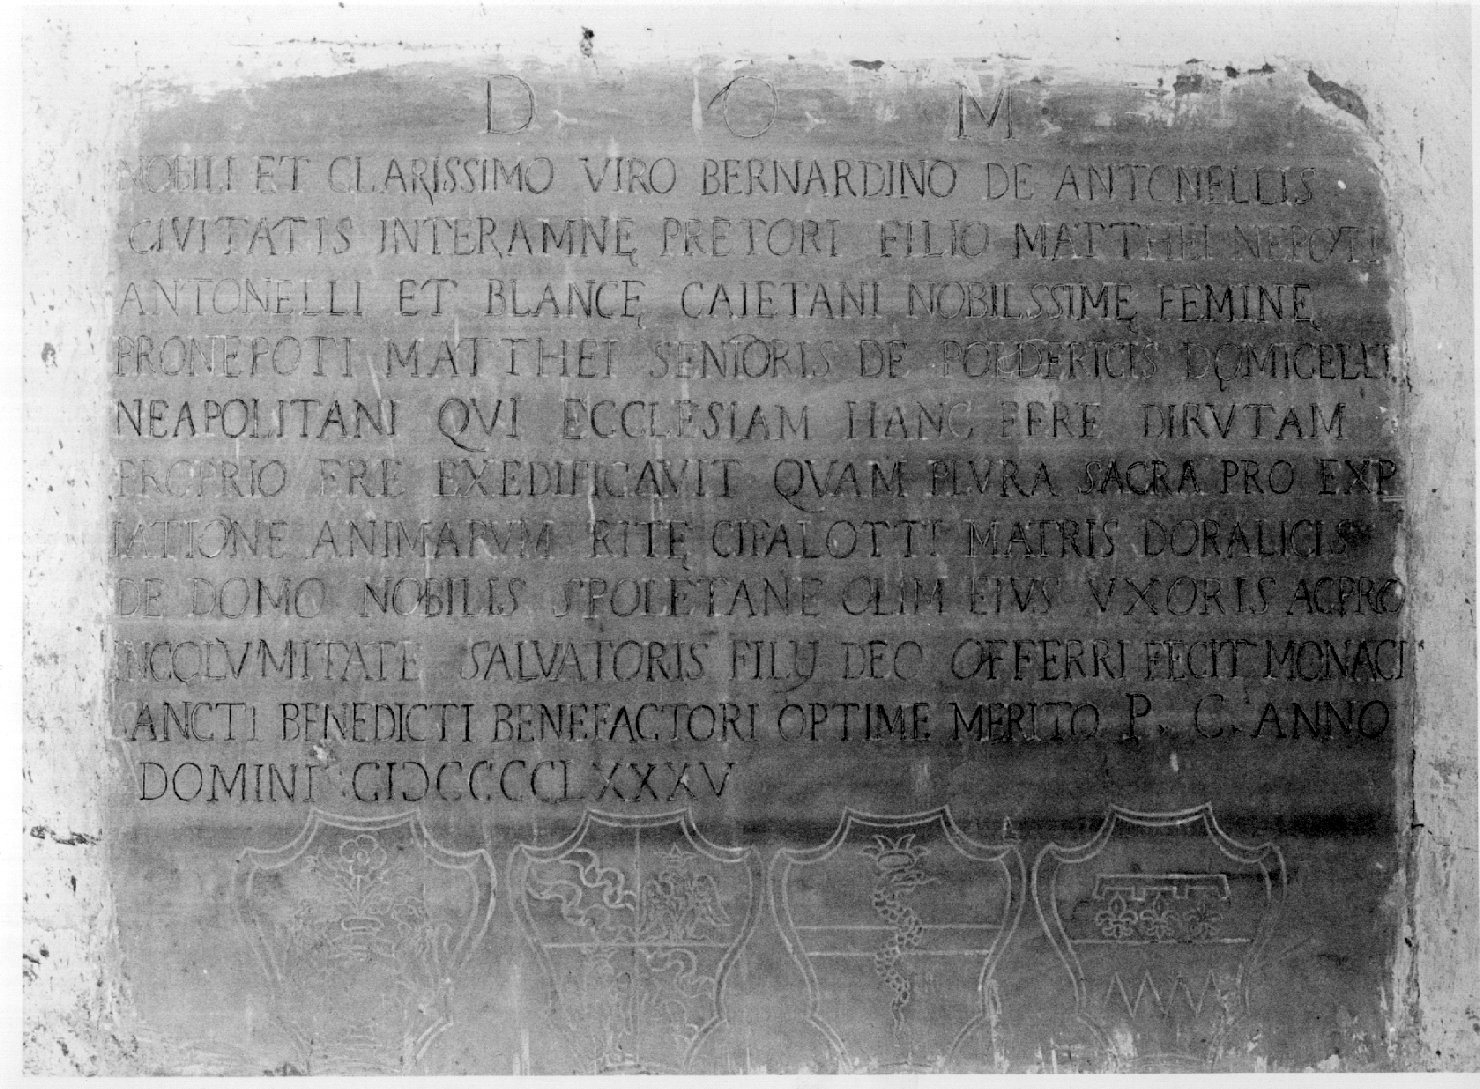 D O M
NOBILI ET CLARISSIMO VIRO BERNARDINO DE ANTONELLIS
CIVITATIS INTERAMNĘ PRETORI FILIO MATTHEI NEPOTI
ANTONELLI ET BLANCĘ CAIETANI NOBILSSIMĘ FEMINĘ
PRONEPOTI MATTHEI SENIORIS DE POLDERICIS DOMICELLI
NEAPOLITANI QVI ECCLESIAM HANC FERE DIRVTAM
PROPRIO ERE EXEDIFICAVIT QVAM PLVRA SACRA PRO EXP
IATIONE ANIMARVM RITĘ CIPALOTTI MATRIS DORALICIS
DE DOMO NOBILIS SPOLETANE OLIM EIVS VXORIS AC PRO
INCOLVMITATE SALVATORIS FILIJ DEO OFFERRI FECIT MONACI
SANCTI BENEDICTI BENEFACTORI OPTIME MERITO P. C. ANNO
DOMINI CIƆCCCCLXXXV